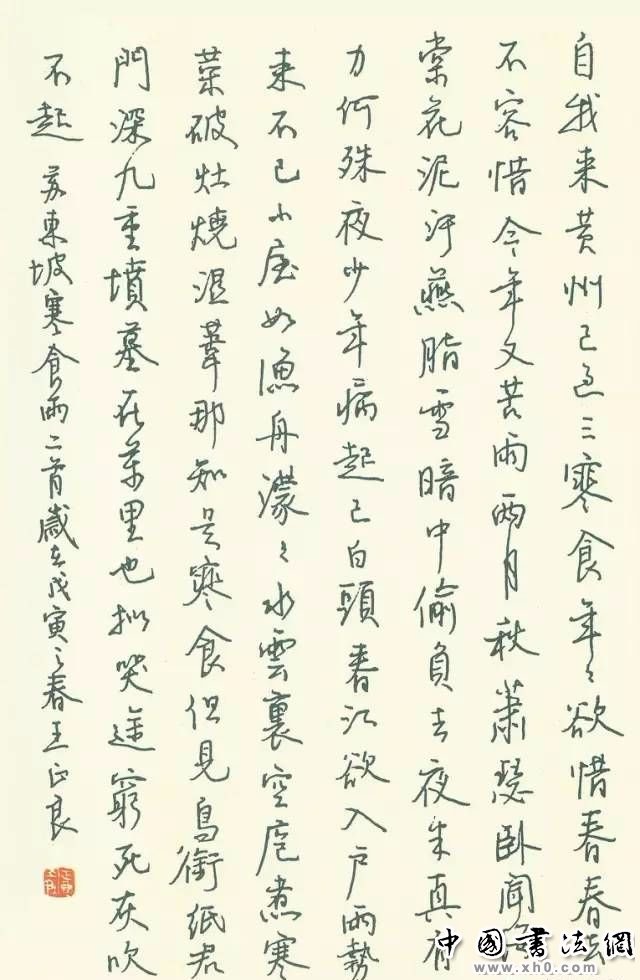 自我来黄州已过三寒食年々欲惜春春去
不容惜今年又苦雨两月秋萧瑟卧闻海
棠花泥汙燕脂雪暗中偷负去夜半真有
力何殊夜少年病起已白頭春江欲入户雨勢
来不已小屋如漁舟濛々水雲裏空庖煮寒
菜破灶燒湿葦那知是寒食但见烏銜纸君
門深九重墳墓在萬里也拟哭途窮死灰吹
不起 苏東坡寒食雨二首歲在戊寅之春王正良
中国書法網
www.xh0.com